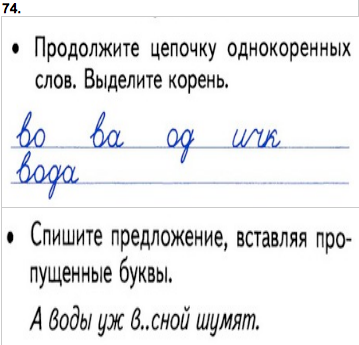 74.
• Продолжите цепочку однокоренных
слов. Выделите корень.
во ва од ичк
вода
• Спишите предложение, вставляя про-
пущенные буквы.
А воды уж в..сной шумят.